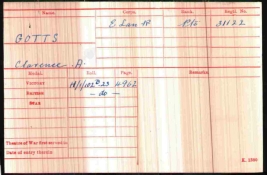 Name. Corps. Rank. Regtl. No.
GOTTS E Lan R Pte 31122
Clarence A.
Medal. Roll. Page. Remarks.
VICTORY 4962
BRITISH - do -
STAR
Theatre of War first served in
Date of entry therein
K. 1380